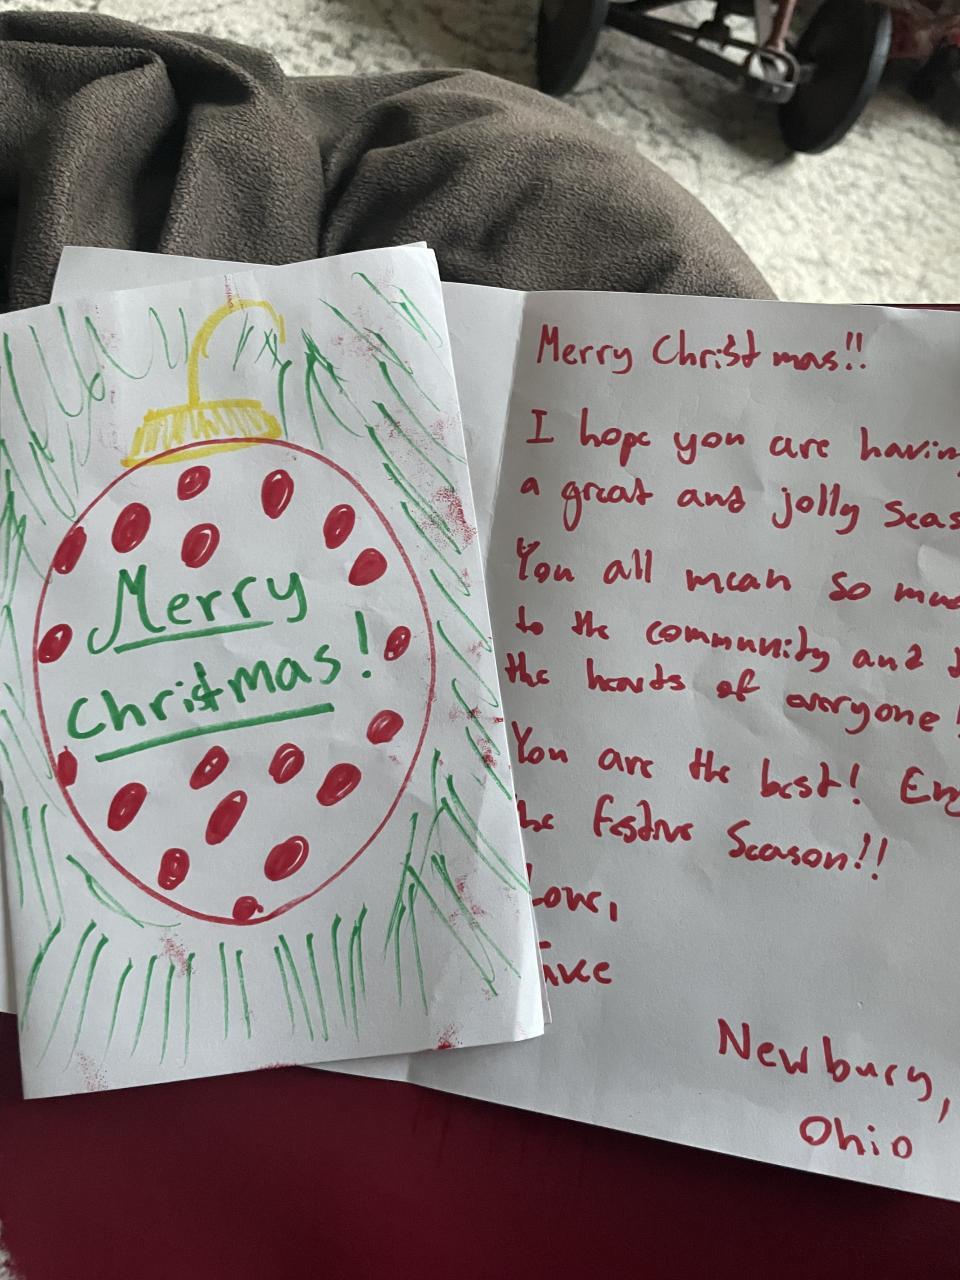 Merry
Christmas!
Merry Christmas!!
I hope you are having
a great and jolly seas
You all mean so muc
to the community and
the hearts of everyone!
You are the best! En
the Festive Season!!
Love,
Newbury,
Ohio